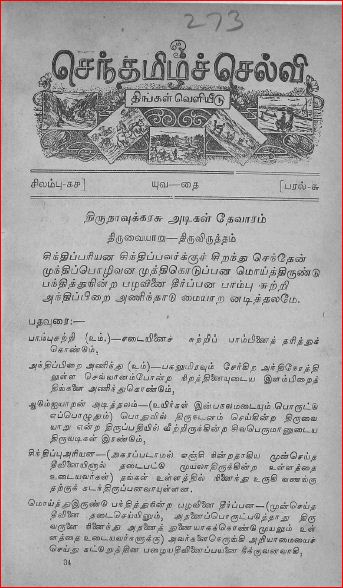 273
செந்தமிழ்ச் செல்வி
திங்கள் வெளியீடு
சிலம்பு-கச] யுவ—தை [பரல்-சு
திருநாவுக்கரசு அடிகள் தேவாரம்
திருவையாறு—திருவிருத்தம்
சிந்திப்பரியன சிந்திப்பவர்க்குச் சிறந்து செந்தேன்
முந்திப்பொழிவன முத்திகொடுப்பன மொய்த்திருண்டு
பந்தித்துநின்ற பழவினை தீர்ப்பன பாம்பு சுற்றி
அந்திப்பிறை அணிந்தாடு மையாற னடித்தலமே.
பதவுரை:—
பாம்புசுற்றி (உம்.)—சடையினைச் சுற்றிப் பாம்பினைத் தரித்துக்
கொண்டும்,
அந்திப்பிறை அணிந்து (உம்)—பகலுமிரவும் சேர்கிற அந்திநேரத்தி
லுள்ள செவ்வானம்போன்ற நிறத்தினையுடைய இளம்பிறைத்
திங்களை அணிந்துகொண்டும்,
ஆடும்ஐயாறன் அடித்தலம்—(உயிர்கள் இன்பசுகமடையும் பொருட்டு
எப்பொழுதும்) பொதுவில் திருநடனம் செய்கின்ற திருவை
யாறு என்ற திருப்பதியில் வீற்றிருக்கின்ற சிவபெருமானுடைய
திருவடிகள் இரண்டும்,
சிந்திப்புஅரியன—(அகரப்படாமல் எஞ்சி நின்றதாகிய முன்செய்த
தீவினையினால் தடைபட்டு முயலாதிருக்கின்ற உள்ளத்தை
உடையவர்கள்) தங்கள் உள்ளத்தில் நினைந்து உருகி வணங்கு
தற்குக் கடக்திருப்பனவாயுள்ளன.
மொய்த்துஇருண்டு பந்தித்துநின்ற பழவினை தீர்ப்பன—(முன்செய்த
தீவினை தடைசெய்யினும், அதனைப்பொருட்படுத்தாது திரு
வருளே நினைந்து அதனைத் துணையாகக்கொண்டு முயலும் உள்
ளத்தை உடையவர்களுக்கு) அவர்களைநெருங்கி அறியாமையைச்
செய்து கட்டுற்றுநின்ற பழையதீவினைப்பயனை நீக்குவனவாகி,
34